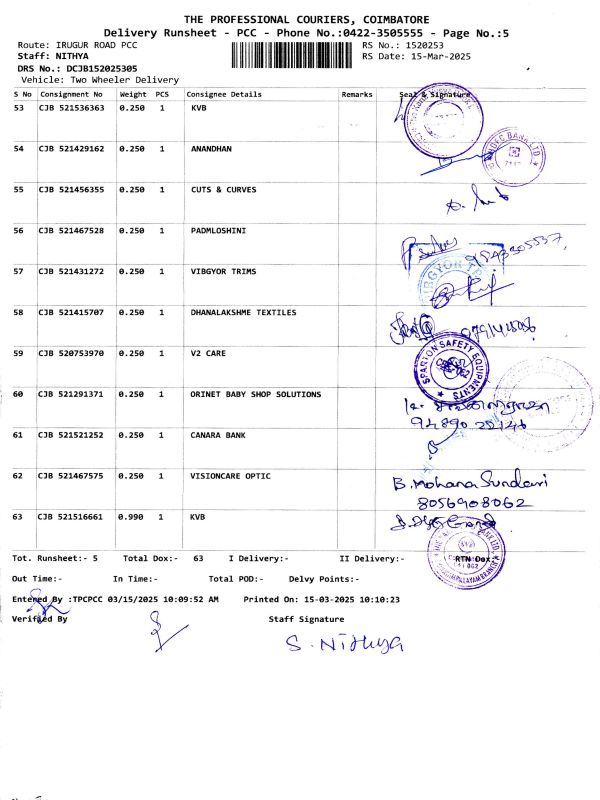 THE PROFESSIONAL COURIERS, COIMBATORE
Delivery Runsheet - PCC - Phone No.:0422-3505555 - Page No.:5
Route: IRUGUR ROAD PCC RS No.: 1520253
Staff: NITHYA RS Date: 15-Mar-2025
DRS No.: DCJB152025305
Vehicle: Two Wheeler Delivery
S No Consignment No Weight PCS Consignee Details Remarks Seal & Signature
53 CJB 521536363 0.250 1 KVB
54 CJB 521429162 0.250 1 ANANDHAN
BANK LTD
55 CJB 521456355 0.250 1 CUTS & CURVES
56 CJB 521467528 0.250 1 PADMLOSHINI
57 CJB 521431272 0.250 1 VIBGYOR TRIMS
VIBGYOR
58 CJB 521415707 0.250 1 DHANALAKSHME TEXTILES
59 CJB 520753970 0.250 1 V2 CARE
SPARTON SAFETY EQUIPMENTS
60 CJB 521291371 0.250 1 ORINET BABY SHOP SOLUTIONS
61 CJB 521521252 0.250 1 CANARA BANK
62 CJB 521467575 0.250 1 VISIONCARE OPTIC B. Mohana Sundari
8056908062
63 CJB 521516661 0.990 1 KVB
Tot. Runsheet:- 5 Total Dox:- 63 I Delivery:- II Delivery:- RTN Dox:-
Out Time:- In Time:- Total POD:- Delvy Points:-
Entered By :TPCPCC 03/15/2025 10:09:52 AM Printed On: 15-03-2025 10:10:23
Verified By Staff Signature
S. Nithya